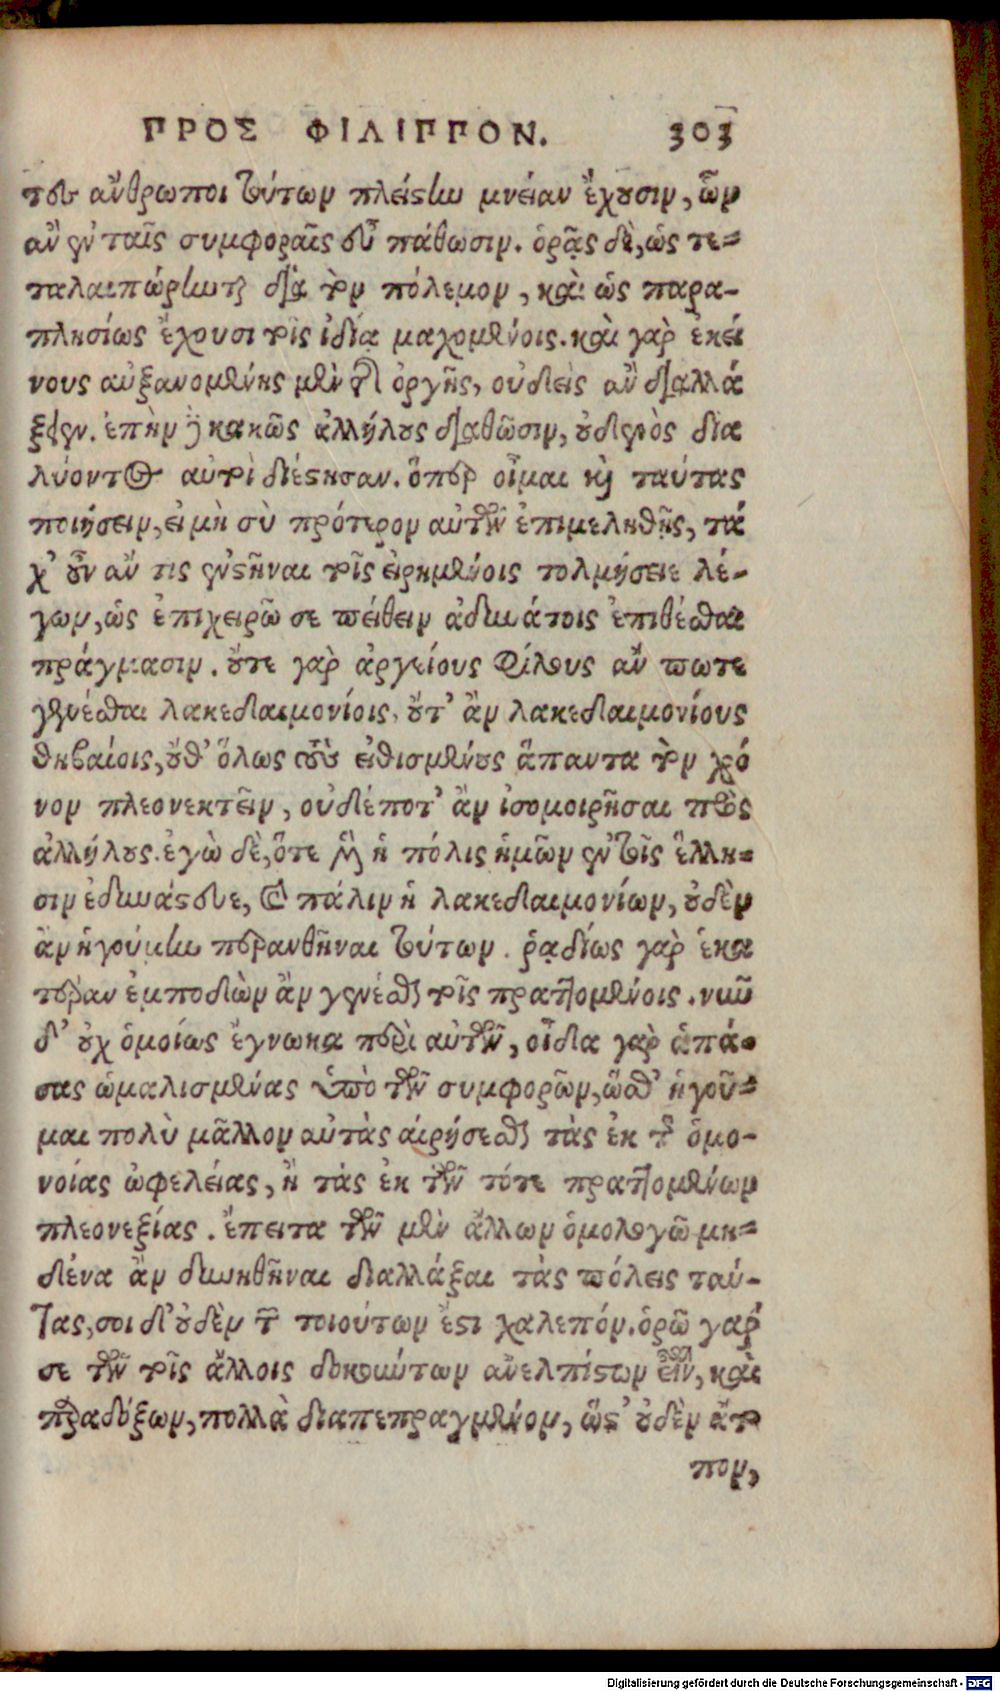 ΠΡΟΣ ΦΙΛΙΠΠΟΝ. 303
τες ἄνθρωποι τούτων πλείστην μνείαν ἔχουσιν, ὧν
ἂν ἐν ταῖς συμφοραῖς εὖ πάθωσιν. ὁρᾷς δὲ, ὡς τε-
ταλαιπώρηνται διὰ τὸν πόλεμον, καὶ ὡς παρα-
πλησίως ἔχουσι τοῖς ἰδίᾳ μαχομένοις. καὶ γὰρ ἐκεί
νους αὐξανομένης μὲν τῆς ὀργῆς, οὐδεὶς ἂν διαλλά
ξειεν. ἐπὴν δὲ κακῶς ἀλλήλους διαθῶσιν, οὐδενὸς δια
λύοντος αὐτοὶ διέστησαν. ὅπερ οἶμαι καὶ ταύτας
ποιήσειν, εἰ μὴ σὺ πρότερον αὐτῶν ἐπιμεληθῇς, τά
χ' οὖν ἄν τις ἐνστῆναι τοῖς εἰρημένοις τολμήσειε λέ-
γων, ὡς ἐπιχειρῶ σε πείθειν ἀδυνάτοις ἐπιθέσθαι
πράγμασιν. οὔτε γὰρ ἀργείους φίλους ἄν ποτε
γενέσθαι λακεδαιμονίοις, οὔτ' ἂν λακεδαιμονίους
θηβαίοις, οὔθ' ὅλως τοὺς εἰθισμένους ἅπαντα τὸν χρό
νον πλεονεκτεῖν, οὐδέποτ' ἂν ἰσομοιρῆσαι πρὸς
ἀλλήλους. ἐγὼ δὲ, ὅτε μὲν ἡ πόλις ἡμῶν ἐν τοῖς ἕλλη-
σιν ἐδυνάστευε, καὶ πάλιν ἡ λακεδαιμονίων, οὐδὲν
ἂν ἡγούμην περανθῆναι τούτων. ῥᾳδίως γὰρ ἑκα
τέραν ἐμποδὼν ἂν γενέσθαι τοῖς πραττομένοις. νῦν
δ' οὐχ ὁμοίως ἔγνωκα περὶ αὐτῶν, οἶδα γὰρ ἁπά-
σας ὡμαλισμένας ὑπὸ τῶν συμφορῶν, ὥσθ' ἡγοῦ-
μαι πολὺ μᾶλλον αὐτὰς αἱρήσεσθαι τὰς ἐκ τῆς ὁμο-
νοίας ὠφελείας, ἢ τὰς ἐκ τῶν τότε πραττομένων
πλεονεξίας. ἔπειτα τῶν μὲν ἄλλων ὁμολογῶ μη-
δένα ἂν δυνηθῆναι διαλλάξαι τὰς πόλεις ταύ-
τας, σοι δ' οὐδὲν τῶν τοιούτων ἐστὶ χαλεπόν. ὁρῶ γάρ
σε τῶν τοῖς ἄλλοις δοκούντων ἀνελπίστων εἶναι, καὶ
παραδόξων, πολλὰ διαπεπραγμένον, ὥστ' οὐδὲν ἄτο
πον,
Digitalisierung gefördert durch die Deutsche Forschungsgemeinschaft - DFG